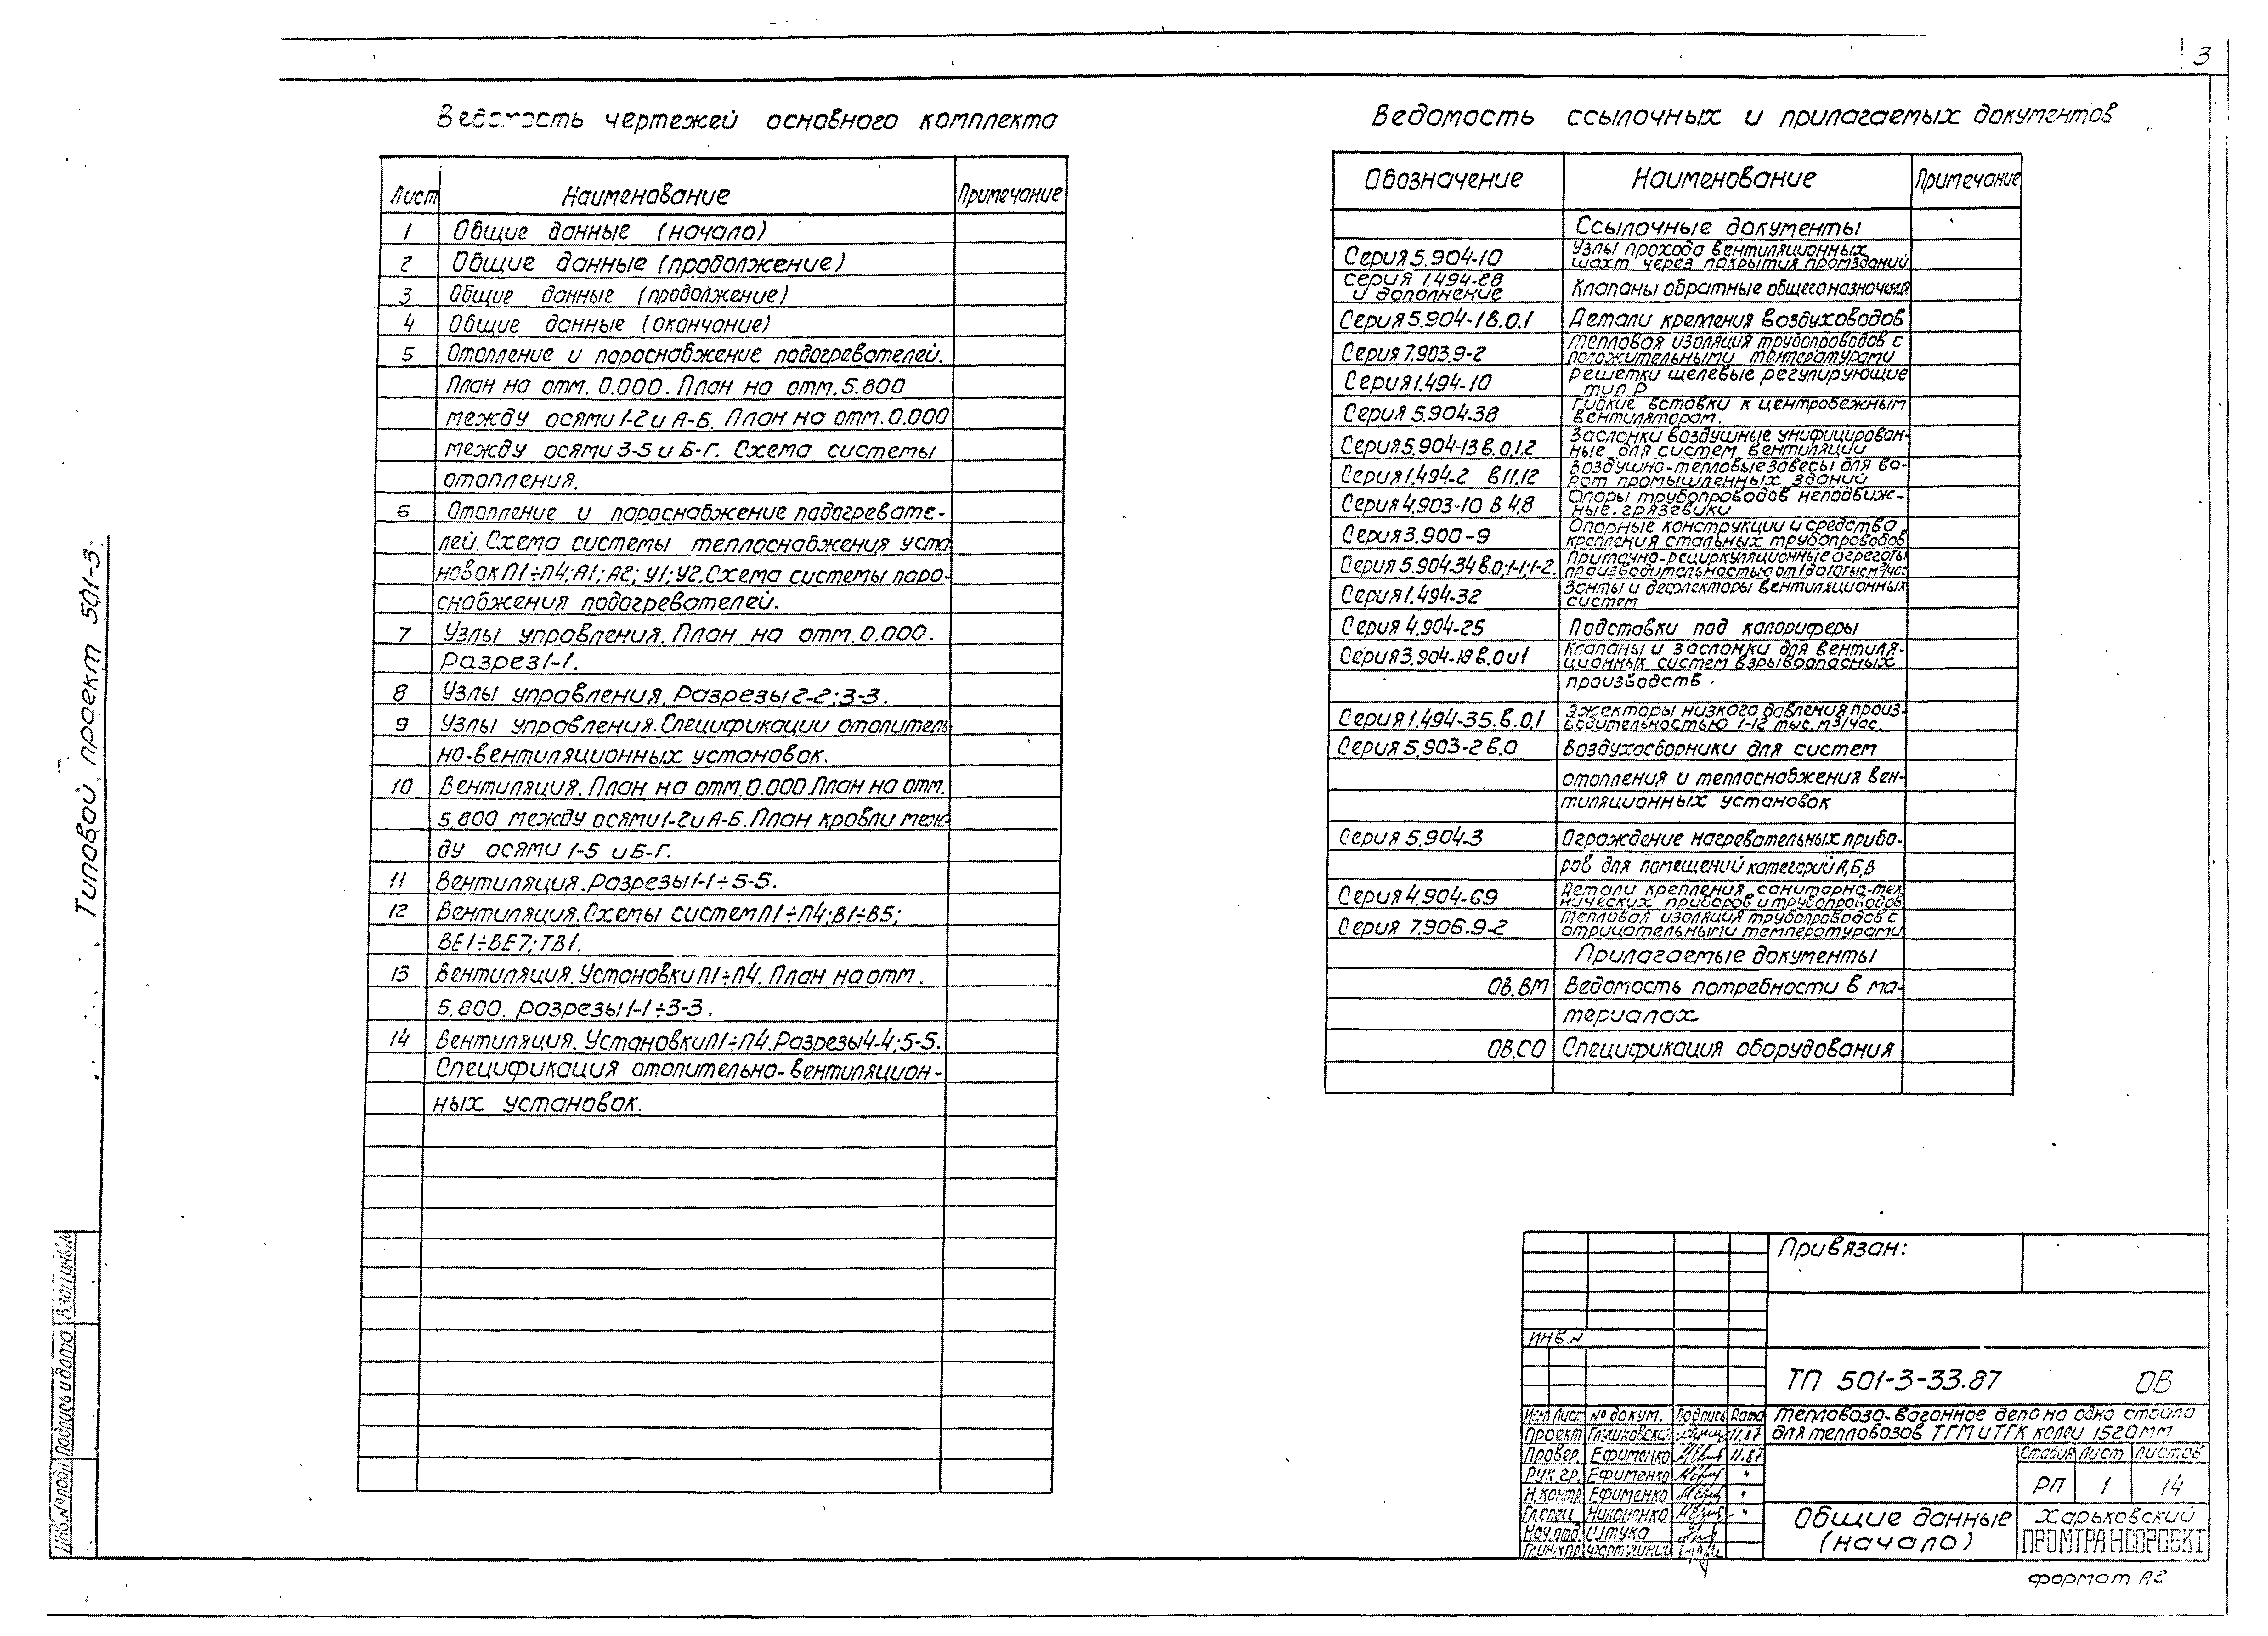 3
Ведомость чертежей основного комплекта
Лист Наименование Примечание
1 Общие данные (начало)
2 Общие данные (продолжение)
3 Общие данные (продолжение)
4 Общие данные (окончание)
5 Отопление и пароснабжение подогревателей.
План на отм. 0.000. План на отм. 5.800
между осями 1-2 и А-Б. План на отм. 0.000
между осями 3-5 и Б-Г. Схема системы
отопления.
6 Отопление и пароснабжение подогревате-
лей. Схема системы теплоснабжения уста
новок П1÷П4; А1; А2; У1; У2. Схема системы паро-
снабжения подогревателей.
7 Узлы управления. План на отм. 0.000.
Разрез 1-1.
8 Узлы управления. Разрезы 2-2; 3-3.
9 Узлы управления. Спецификации отопитель
но-вентиляционных установок.
10 Вентиляция. План на отм. 0.000. План на отм.
5.800 между осями 1-2 и А-Б. План кровли меж
ду осями 1-5 и Б-Г.
11 Вентиляция. Разрезы 1-1÷5-5.
12 Вентиляция. Схемы систем П1÷П4; В1÷В5;
ВЕ1÷ВЕ7; ТВ1.
13 Вентиляция. Установки П1÷П4. План на отм.
5.800. Разрезы 1-1÷3-3.
14 Вентиляция. Установки П1÷П4. Разрезы 4-4; 5-5.
Спецификация отопительно-вентиляцион-
ных установок.
Ведомость ссылочных и прилагаемых документов
Обозначение Наименование Примечание
Ссылочные документы
Серия 5.904-10 Узлы прохода вентиляционных
шахт через покрытия промзданий
серия 1.494-28
и дополнение Клапаны обратные общего назначения
Серия 5.904-1 в.0.1 Детали крепления воздуховодов
Серия 7.903.9-2 Тепловая изоляция трубопроводов с
положительными температурами
Серия 1.494-10 Решетки щелевые регулирующие
тип Р
Серия 5.904-38 Гибкие вставки к центробежным
вентиляторам.
Серия 5.904-13 в.0,1.2 Заслонки воздушные унифицирован-
ные для систем вентиляции
Серия 1.494-2 в 11.12 Воздушно-тепловые завесы для во-
рот промышленных зданий
Серия 4.903-10 в 4,8 Опоры трубопроводов неподвиж-
ные. грязевики
Серия 3.900-9 Опорные конструкции и средства
крепления стальных трубопроводов
Серия 5.904-34 в.0;1-1;1-2. Приточно-рециркуляционные агрегаты
производительностью от 1 до тыс м³/час
Серия 1.494-32 Зонты и дефлекторы вентиляционных
систем
Серия 4.904-25 Подставки под калориферы
Серия 3.904-18 в.0 и 1 Клапаны и заслонки для вентиля-
ционных систем взрывоопасных
производств.
Серия 1.494-35.в.0,1 Эжекторы низкого давления произ-
водительностью 1-12 тыс. м³/час.
Серия 5.903-2 в.0 Воздухосборники для систем
отопления и теплоснабжения вен-
тиляционных установок
Серия 5.904-3 Ограждение нагревательных прибо-
ров для помещений категорий А,Б,В
Серия 4.904-69 Детали крепления санитарно-тех
нических приборов и трубопроводов
Серия 7.906.9-2 Тепловая изоляция трубопроводов с
отрицательными температурами
Прилагаемые документы
ОВ.ВМ Ведомость потребности в ма-
териалах
ОВ.СО Спецификация оборудования
Типовой проект 501-3-
Инв.№подл Подпись и дата Взам инв.№
Привязан:
ИНВ.N
ТП 501-3-33.87 ОВ
Изм Лист № докум. Подпись Дата
Тепловозо-вагонное депо на одно стойло
для тепловозов ТГМ и ТГК колеи 1520мм
Проект 11.87
Провер. Ефименко 11.87
Рук.гр. Ефименко "
Н.контр Ефименко "
Гл.спец Никоненко "
Нач.отд. Штука
Гл.инж.пр.
Стадия Лист Листов
РП 1 14
Общие данные
(начало)
Харьковский
ПРОМТРАНСПРОЕКТ
формат А2